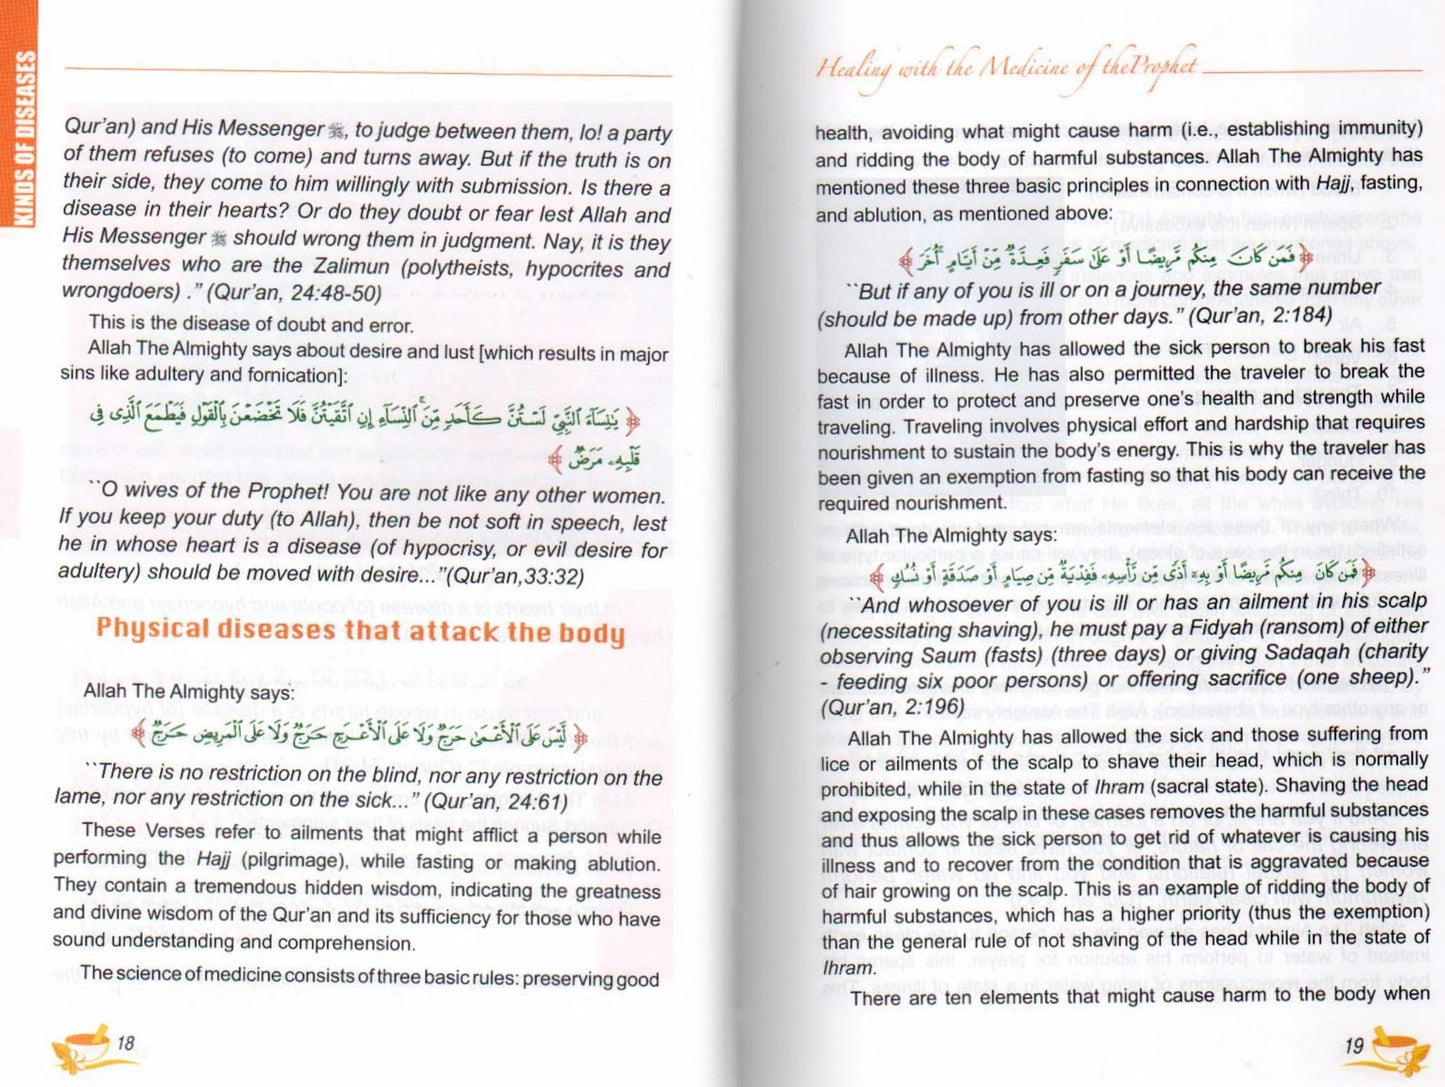 KINDS OF DISEASES
Qur'an) and His Messenger ﷺ, to judge between them, lo! a party
of them refuses (to come) and turns away. But if the truth is on
their side, they come to him willingly with submission. Is there a
disease in their hearts? Or do they doubt or fear lest Allah and
His Messenger ﷺ should wrong them in judgment. Nay, it is they
themselves who are the Zalimun (polytheists, hypocrites and
wrongdoers) ." (Qur'an, 24:48-50)
This is the disease of doubt and error.
Allah The Almighty says about desire and lust [which results in major
sins like adultery and fornication]:
﴿ يَٰنِسَآءَ ٱلنَّبِيِّ لَسْتُنَّ كَأَحَدٍ مِّنَ ٱلنِّسَآءِ إِنِ ٱتَّقَيْتُنَّ فَلَا تَخْضَعْنَ بِٱلْقَوْلِ فَيَطْمَعَ ٱلَّذِى فِى
قَلْبِهِۦ مَرَضٌ ﴾
``O wives of the Prophet! You are not like any other women.
If you keep your duty (to Allah), then be not soft in speech, lest
he in whose heart is a disease (of hypocrisy, or evil desire for
adultery) should be moved with desire..."(Qur'an,33:32)
Physical diseases that attack the body
Allah The Almighty says:
﴿ لَّيْسَ عَلَى ٱلْأَعْمَىٰ حَرَجٌ وَلَا عَلَى ٱلْأَعْرَجِ حَرَجٌ وَلَا عَلَى ٱلْمَرِيضِ حَرَجٌ ﴾
``There is no restriction on the blind, nor any restriction on the
lame, nor any restriction on the sick..." (Qur'an, 24:61)
These Verses refer to ailments that might afflict a person while
performing the Hajj (pilgrimage), while fasting or making ablution.
They contain a tremendous hidden wisdom, indicating the greatness
and divine wisdom of the Qur'an and its sufficiency for those who have
sound understanding and comprehension.
The science of medicine consists of three basic rules: preserving good
18
Healing with the Medicine of theProphet
health, avoiding what might cause harm (i.e., establishing immunity)
and ridding the body of harmful substances. Allah The Almighty has
mentioned these three basic principles in connection with Hajj, fasting,
and ablution, as mentioned above:
﴿ فَمَن كَانَ مِنكُم مَّرِيضًا أَوْ عَلَىٰ سَفَرٍ فَعِدَّةٌ مِّنْ أَيَّامٍ أُخَرَ ﴾
``But if any of you is ill or on a journey, the same number
(should be made up) from other days." (Qur'an, 2:184)
Allah The Almighty has allowed the sick person to break his fast
because of illness. He has also permitted the traveler to break the
fast in order to protect and preserve one's health and strength while
traveling. Traveling involves physical effort and hardship that requires
nourishment to sustain the body's energy. This is why the traveler has
been given an exemption from fasting so that his body can receive the
required nourishment.
Allah The Almighty says:
﴿ فَمَن كَانَ مِنكُم مَّرِيضًا أَوْ بِهِۦٓ أَذًى مِّن رَّأْسِهِۦ فَفِدْيَةٌ مِّن صِيَامٍ أَوْ صَدَقَةٍ أَوْ نُسُكٍ ﴾
``And whosoever of you is ill or has an ailment in his scalp
(necessitating shaving), he must pay a Fidyah (ransom) of either
observing Saum (fasts) (three days) or giving Sadaqah (charity
- feeding six poor persons) or offering sacrifice (one sheep)."
(Qur'an, 2:196)
Allah The Almighty has allowed the sick and those suffering from
lice or ailments of the scalp to shave their head, which is normally
prohibited, while in the state of Ihram (sacral state). Shaving the head
and exposing the scalp in these cases removes the harmful substances
and thus allows the sick person to get rid of whatever is causing his
illness and to recover from the condition that is aggravated because
of hair growing on the scalp. This is an example of ridding the body of
harmful substances, which has a higher priority (thus the exemption)
than the general rule of not shaving of the head while in the state of
Ihram.
There are ten elements that might cause harm to the body when
19